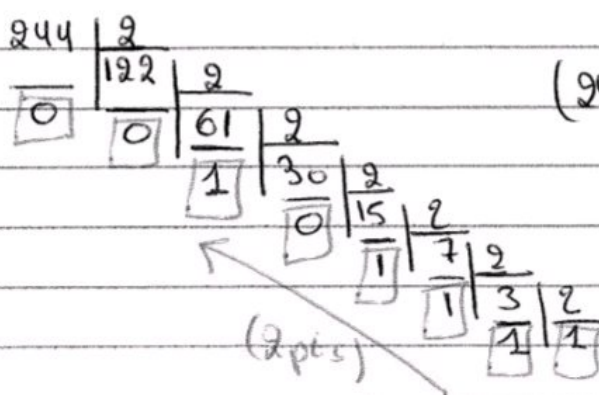 244 2
122 2
0 0 61 2
1 30 2
0 15 2
1 7 2
1 3 2
1 1
(2pts)